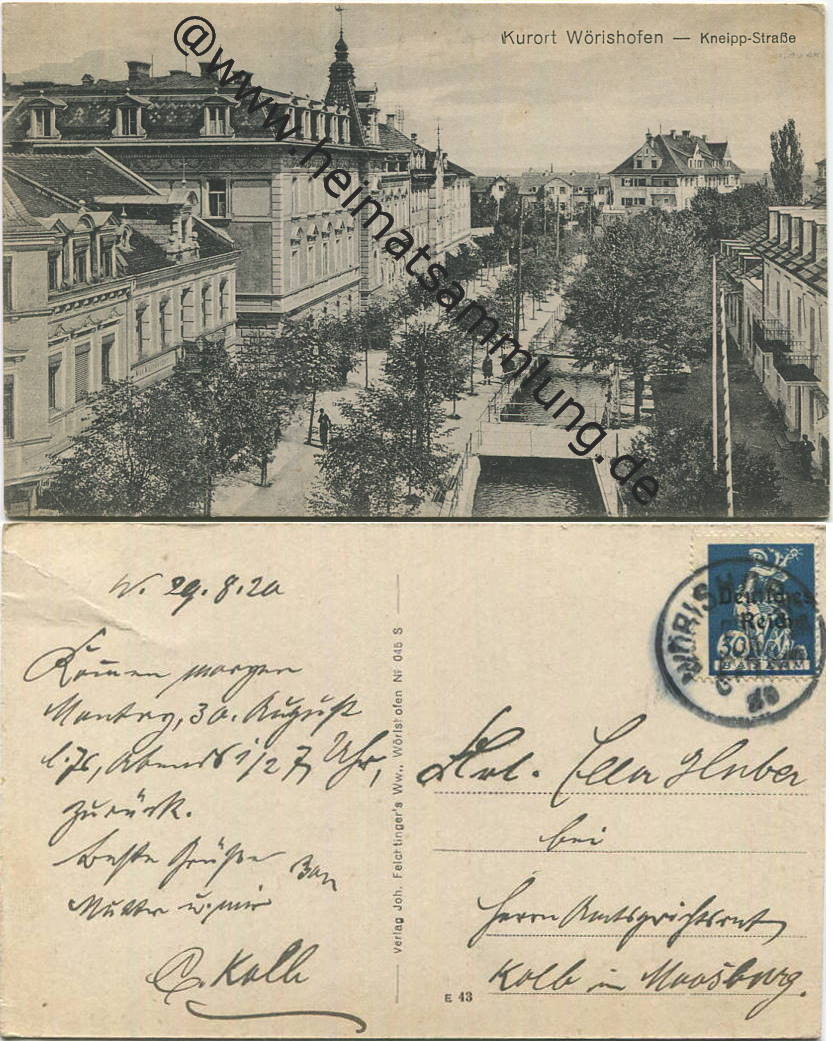 Kurort Wörishofen — Kneipp-Straße
@www.heimatsammlung.de
W. 29.8.20
Kommen morgen
Montag, 30. August
l. Js, Abends 1/2 7 Uhr,
zurück.
Beste Grüße von
Mutter u. mir
C. Kolb
Verlag Joh. Feichtinger's Ww., Wörishofen № 045 S
E 43
Deutsches
Reich
30
BAYERN
WÖRISH
Frl. Ella Huber
bei
Herrn Amtsgerichtsrat
Kolb in Moosburg.